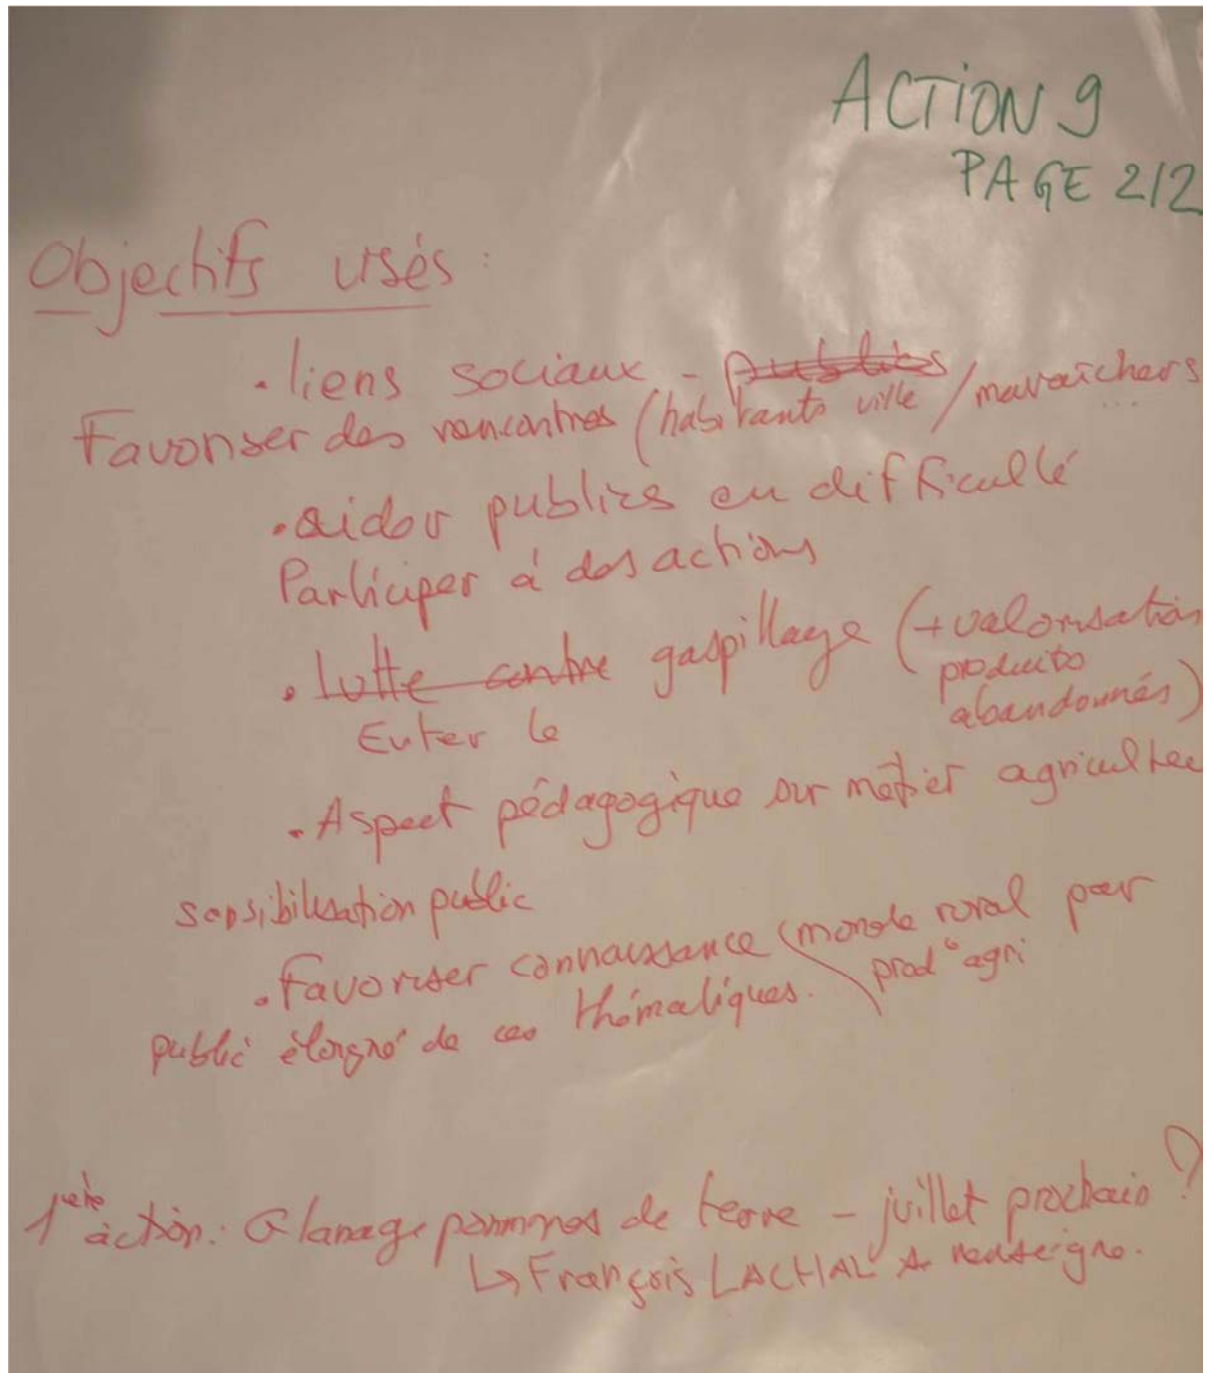 ACTION 9
PAGE 2/2
Objectifs visés :
. liens sociaux - publics
Favoriser des rencontres (habitants ville / maraîchers ...
. aider publics en difficulté
Participer à des actions
. lutte contre gaspillage (+ valorisation
produits
abandonnés)
Eviter le
. Aspect pédagogique sur métier agriculteur
sensibilisation public
. Favoriser connaissance (monde rural pour
prod° agri
public éloigné de ces thématiques.
1ère action : Glanage pommes de terre - juillet prochain ?
↳ François LACHAL se renseigne.